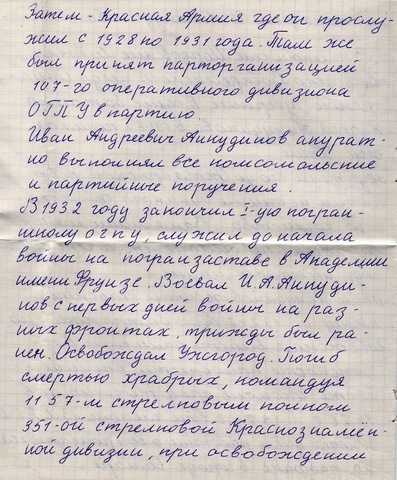 Затем - Красная Армия где он прослу-
жил с 1928 по 1931 года. Там же
был принят парторганизацией
107-го оперативного дивизиона
ОГПУ в партию.
Иван Андреевич Анкудинов акурат-
но выполнял все комсомольские
и партийные поручения.
В 1932 году закончил I-ую погран-
школу огпу, служил до начала
войны на погранзаставе в Академии
имени Фрунзе. Воевал И.А.Анкуди-
нов с первых дней войны на раз-
ных фронтах, трижды был ра-
нен. Освобождал Ужгород. Погиб
смертью храбрых, командуя
1157-м стрелковым полком
351-ой стрелковой Краснознамён-
ной дивизии, при освобождении